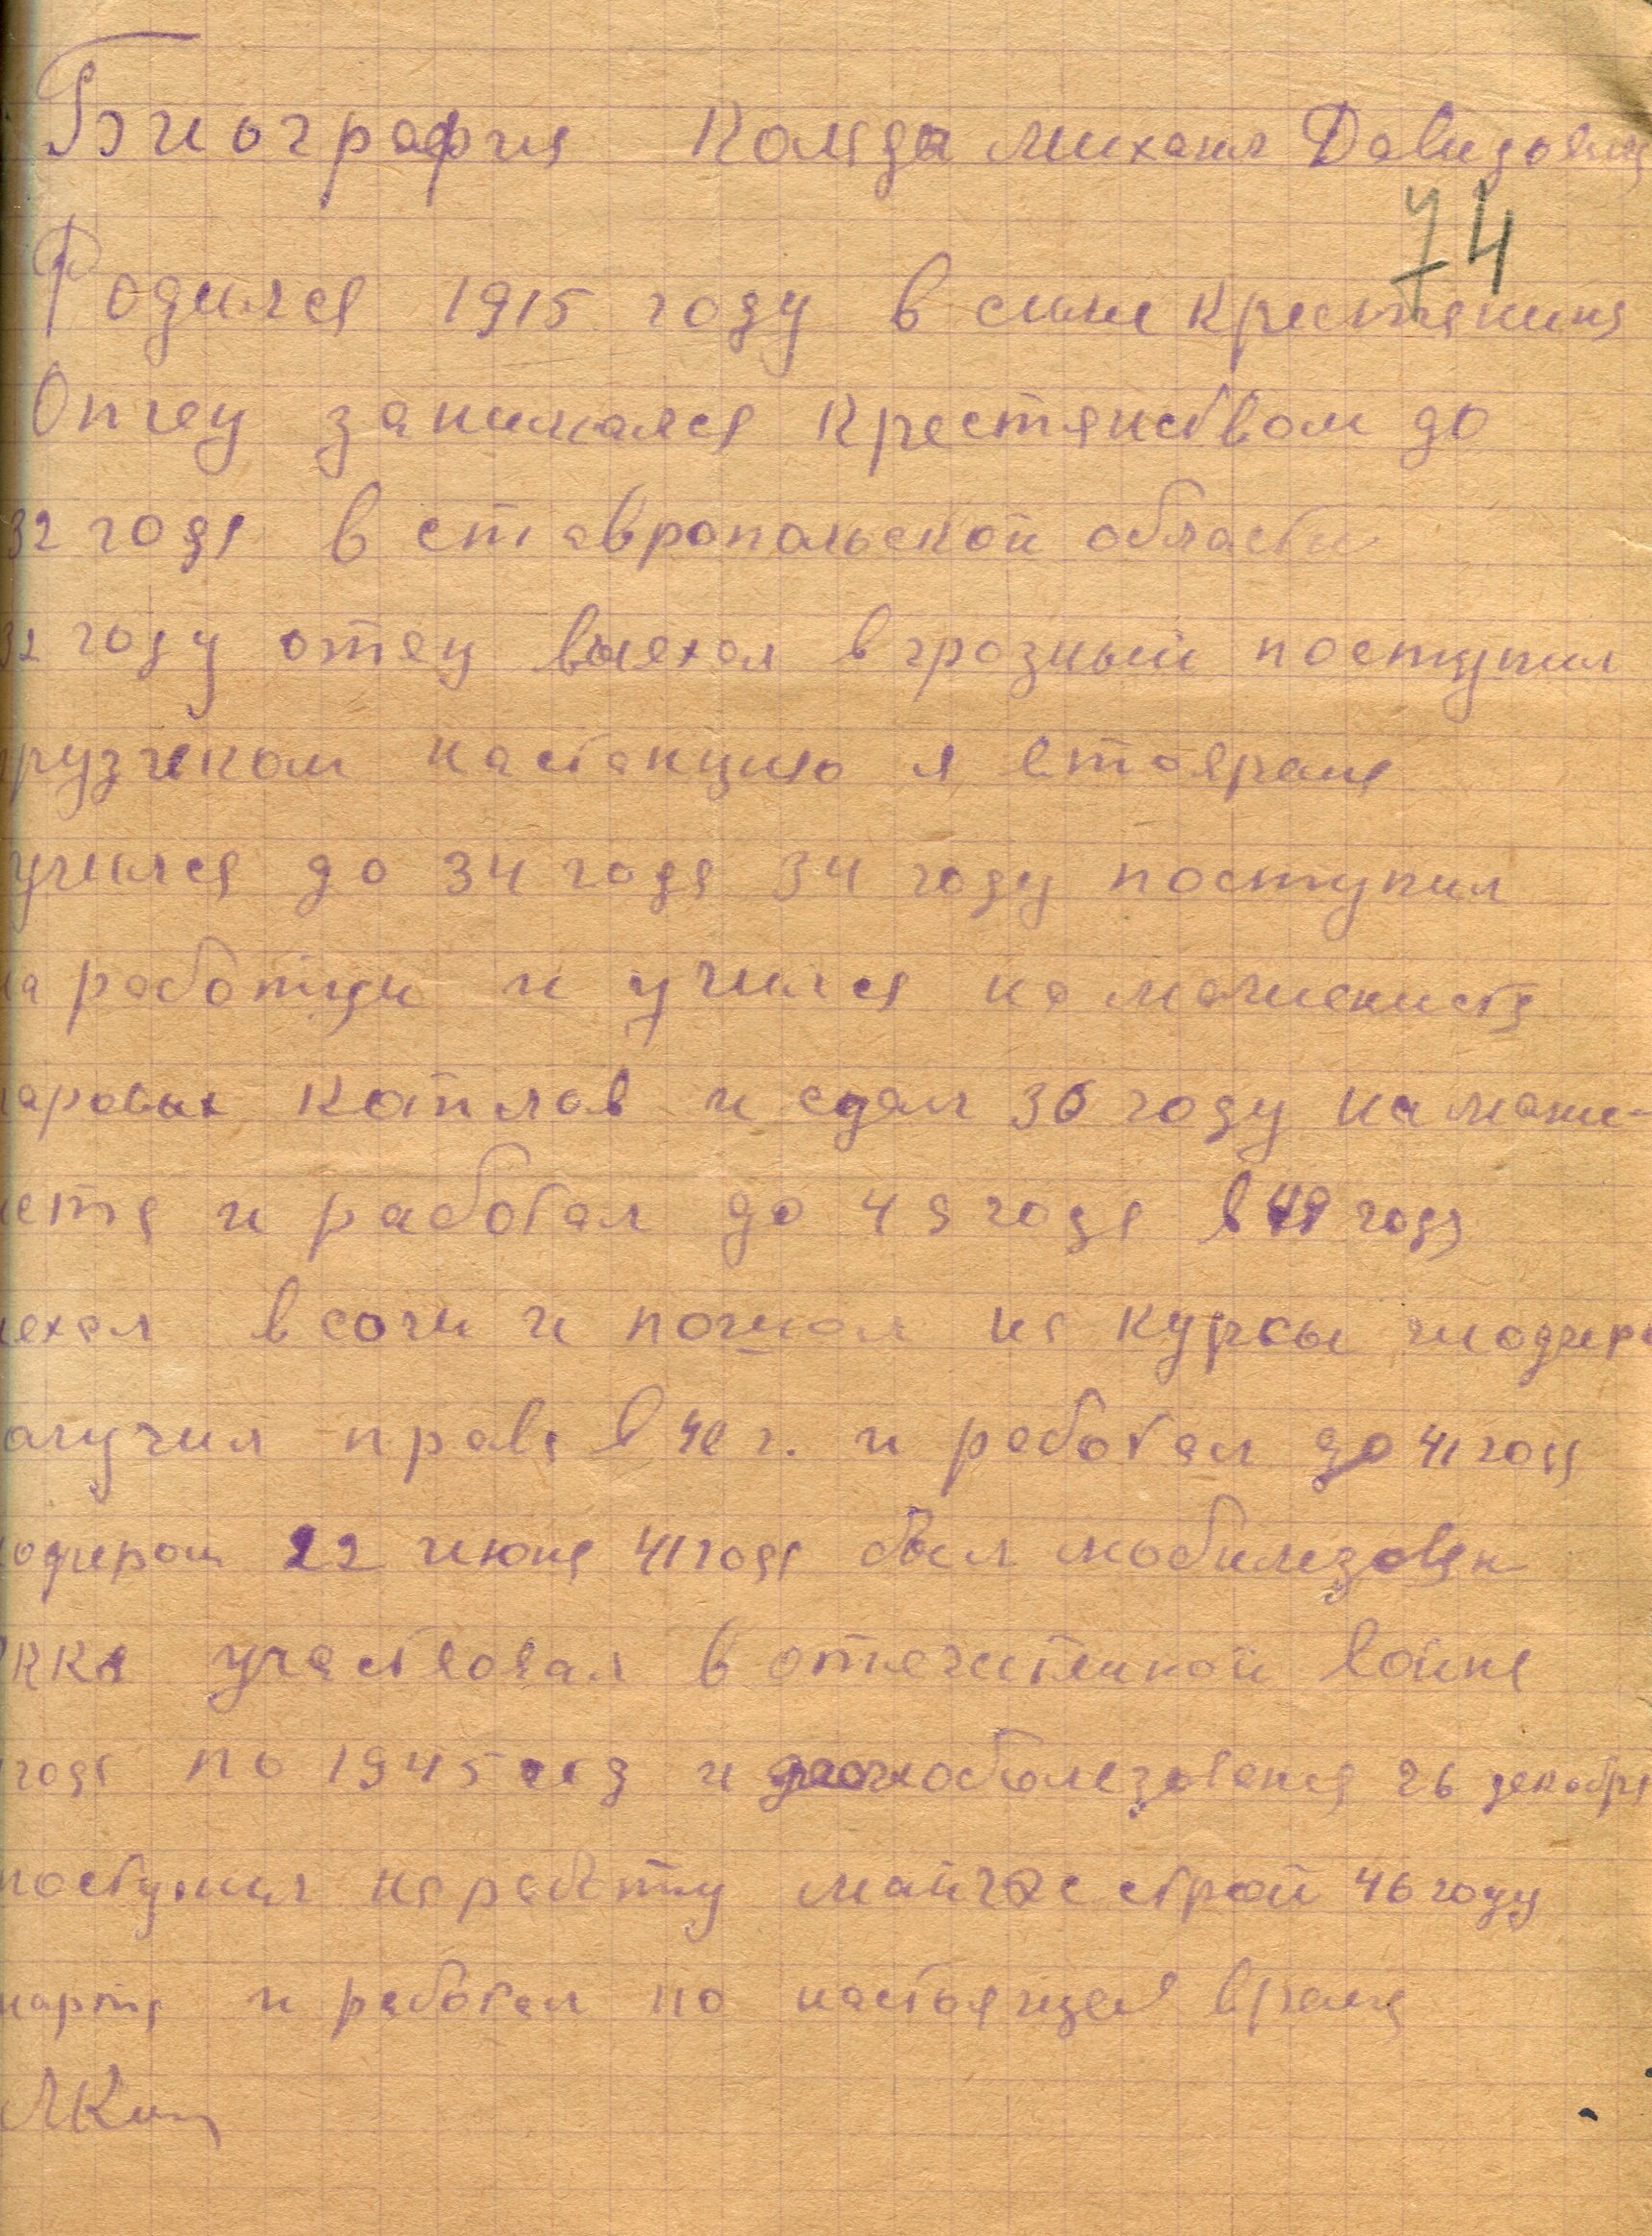 Биография Коляда Михаил Давидович
74
Родился 1915 году в сымье Крестянина
Отец занимался Крестянством до
32 года в ставропольской области
32 году отец выехал в грозный поступил
грузчиком на станцию я в то время
учился до 34 года 34 году поступил
на работу и учился на машениста
паровых котлов и сдал 36 году на маши-
ста и работал до года в году
ехал в сочи и пошол на курсы
олучил права в 40 г. и работал до 41 года
22 июня 41 года был мобилезован
РККА участвовал в отечественной войне
года по 1945 и 26 декабря
поступил на работу строй 46 году
марта и работал по настоящее время